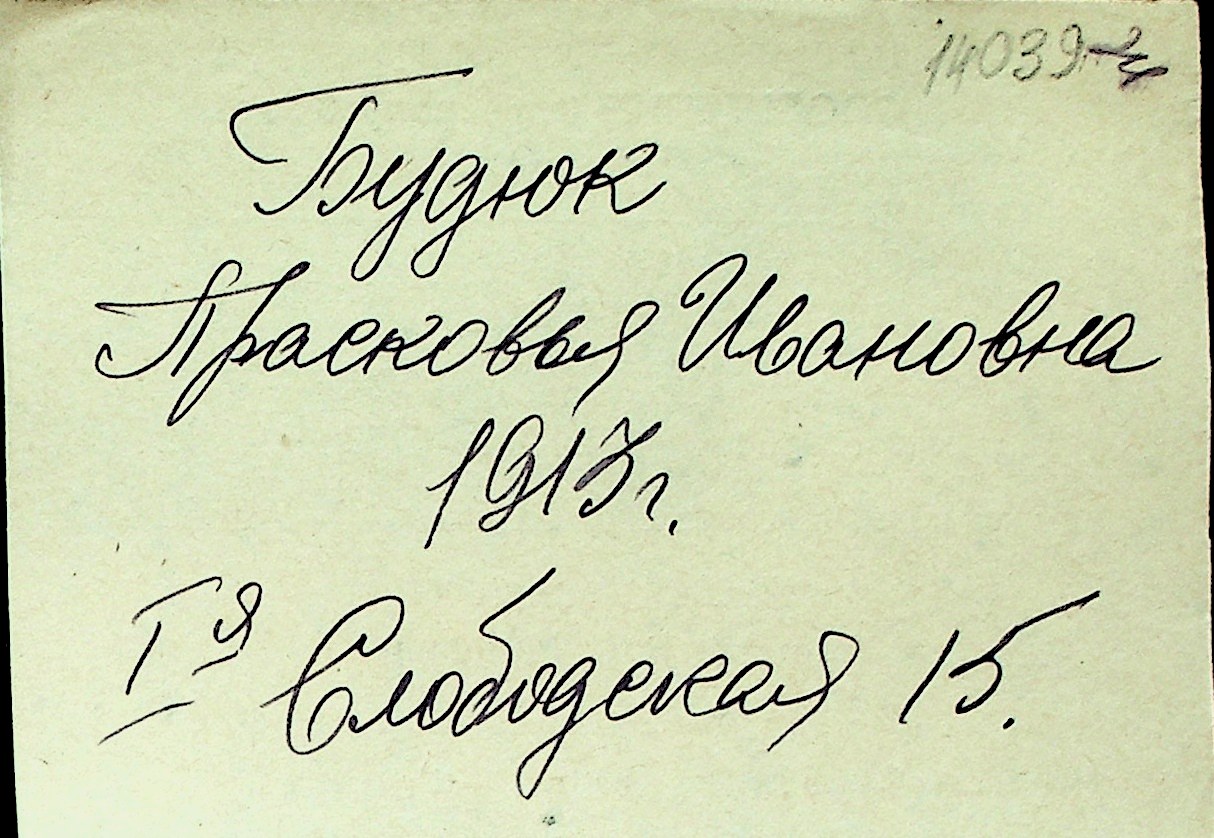 14039
Будюк
Прасковья Ивановна
1913г.
I я Слободская 15.